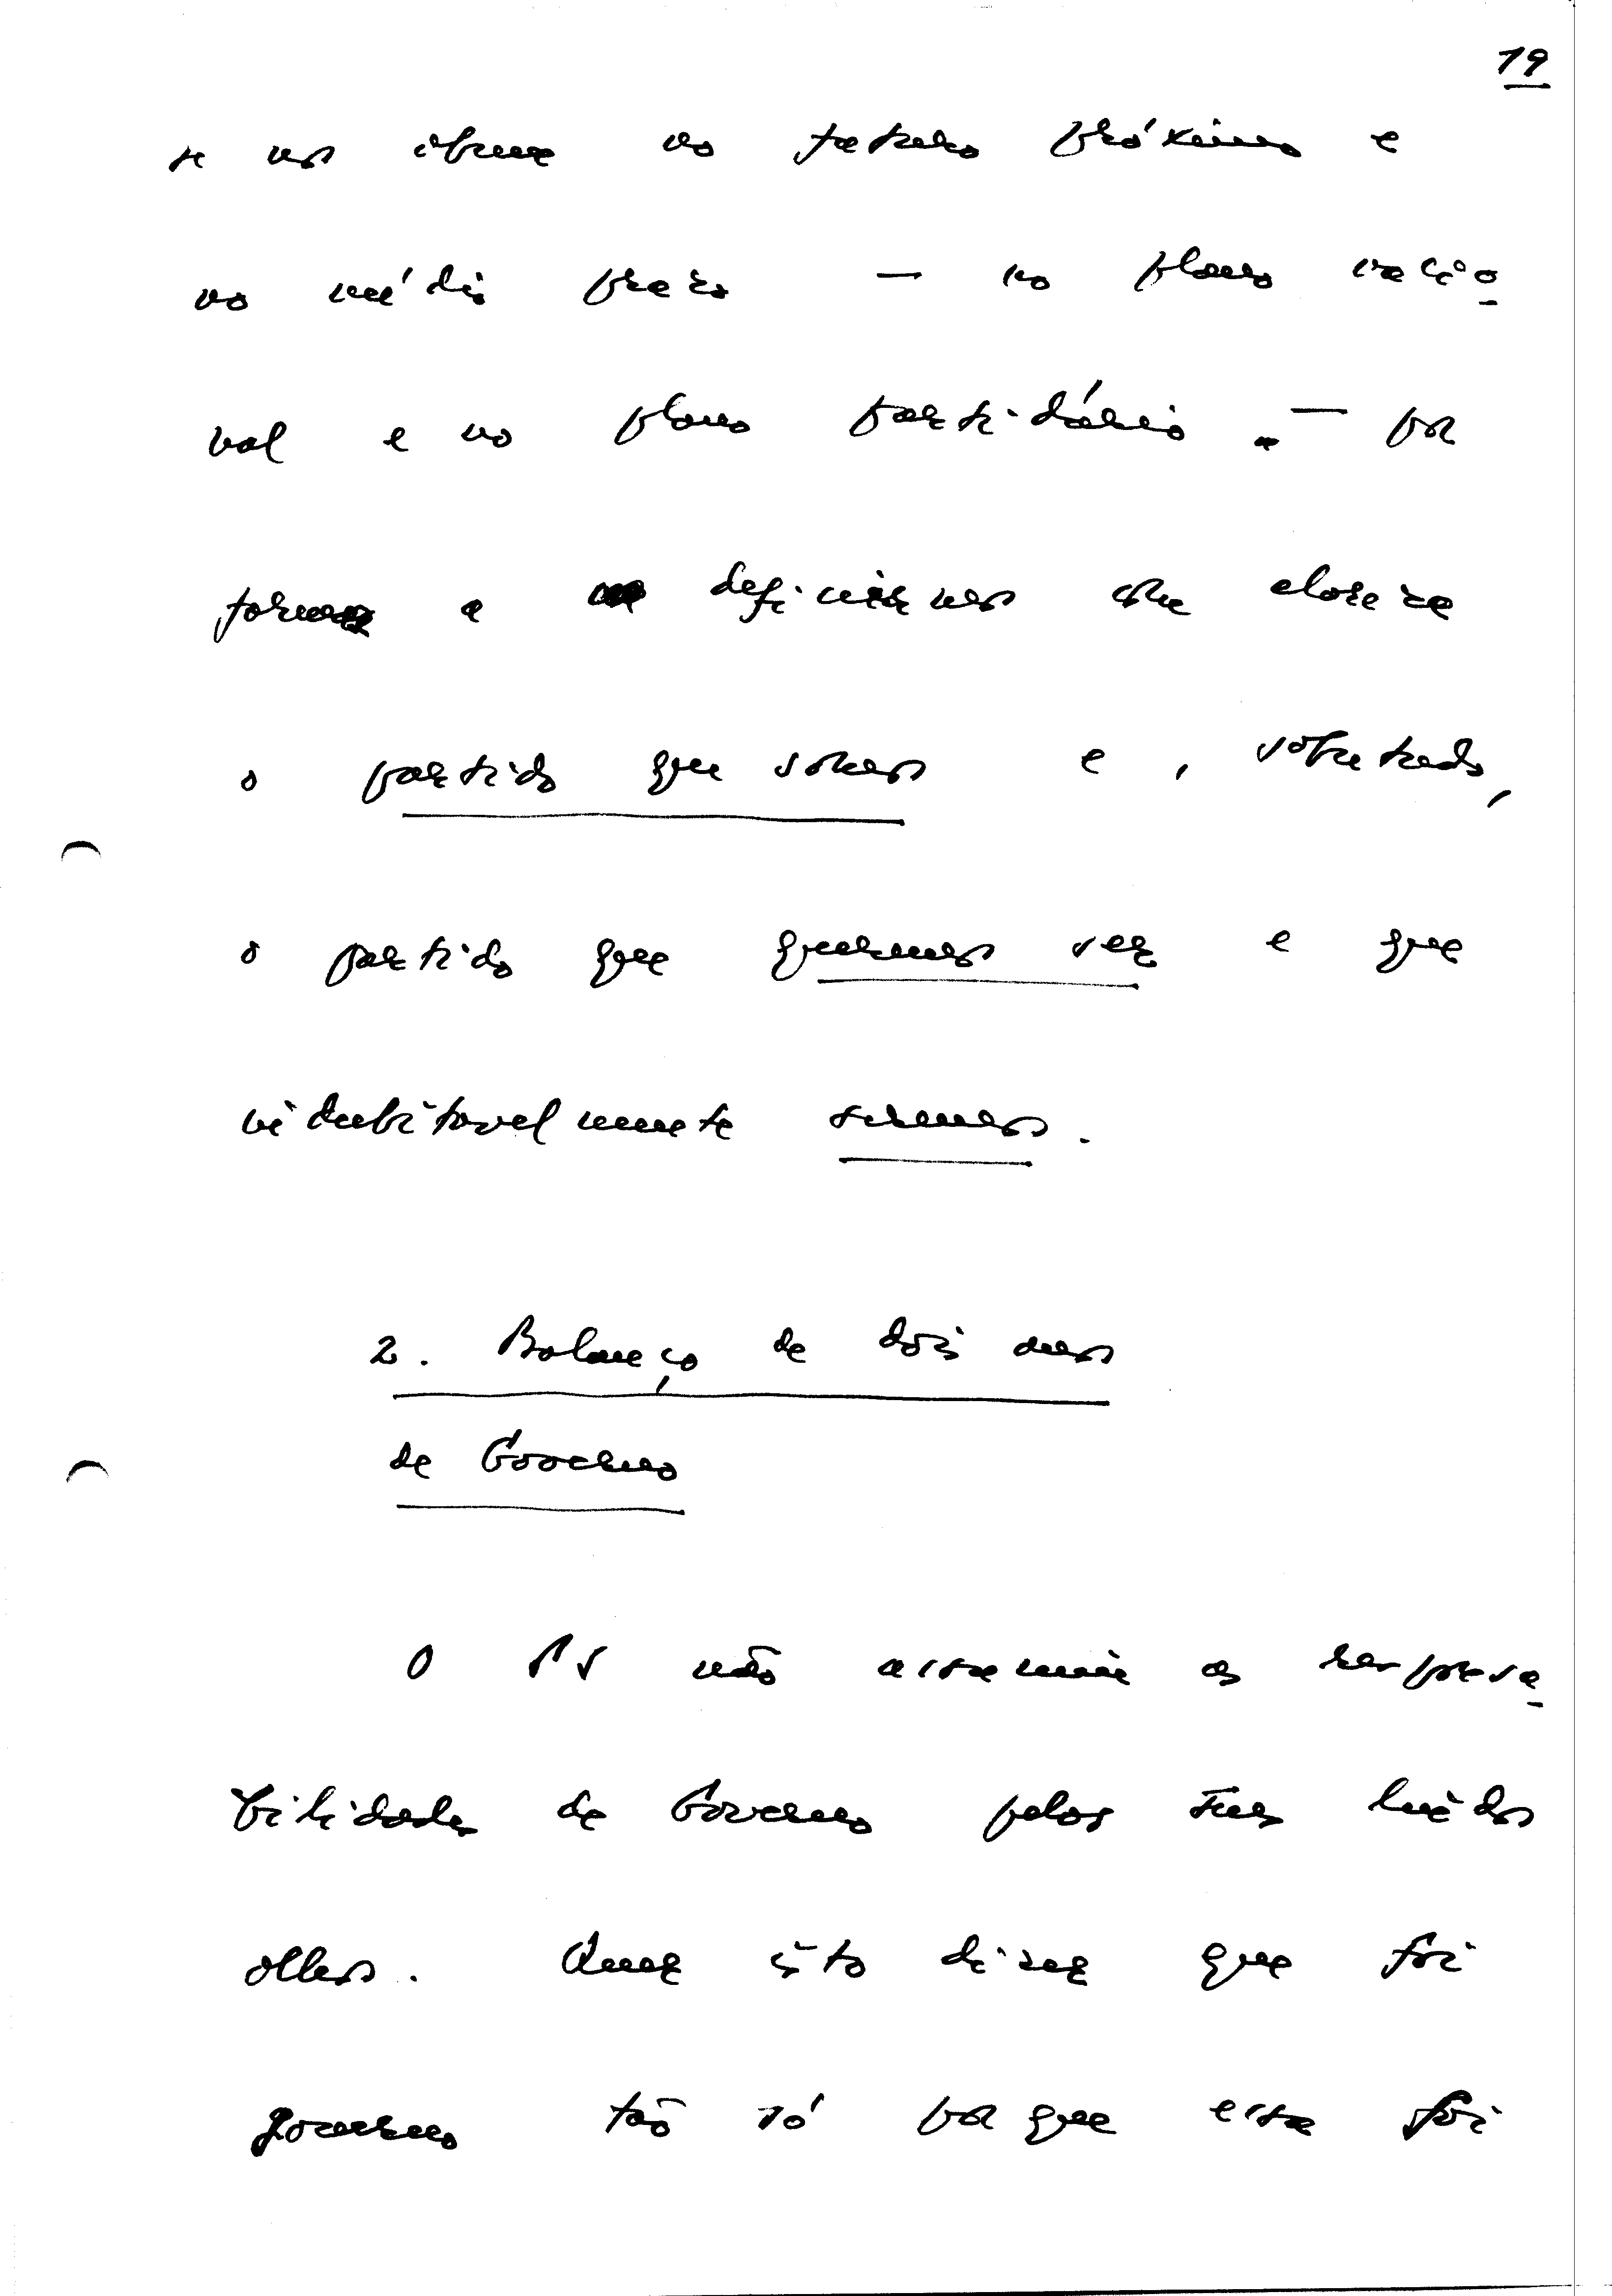 19
se nos abre no futuro próximo e
no médio prazo — no plano nacio-
nal e no plano partidário — por
forma a definirmos com clareza
o partido que somos e, sobretudo,
o partido que queremos ser e que
indubitavelmente seremos.
2. Balanço de dois anos
de Governo
O PS não assumiu as responsa-
bilidades de Governo pelos seus lindos
olhos. Quer isto dizer que foi
governo tão só porque essa foi